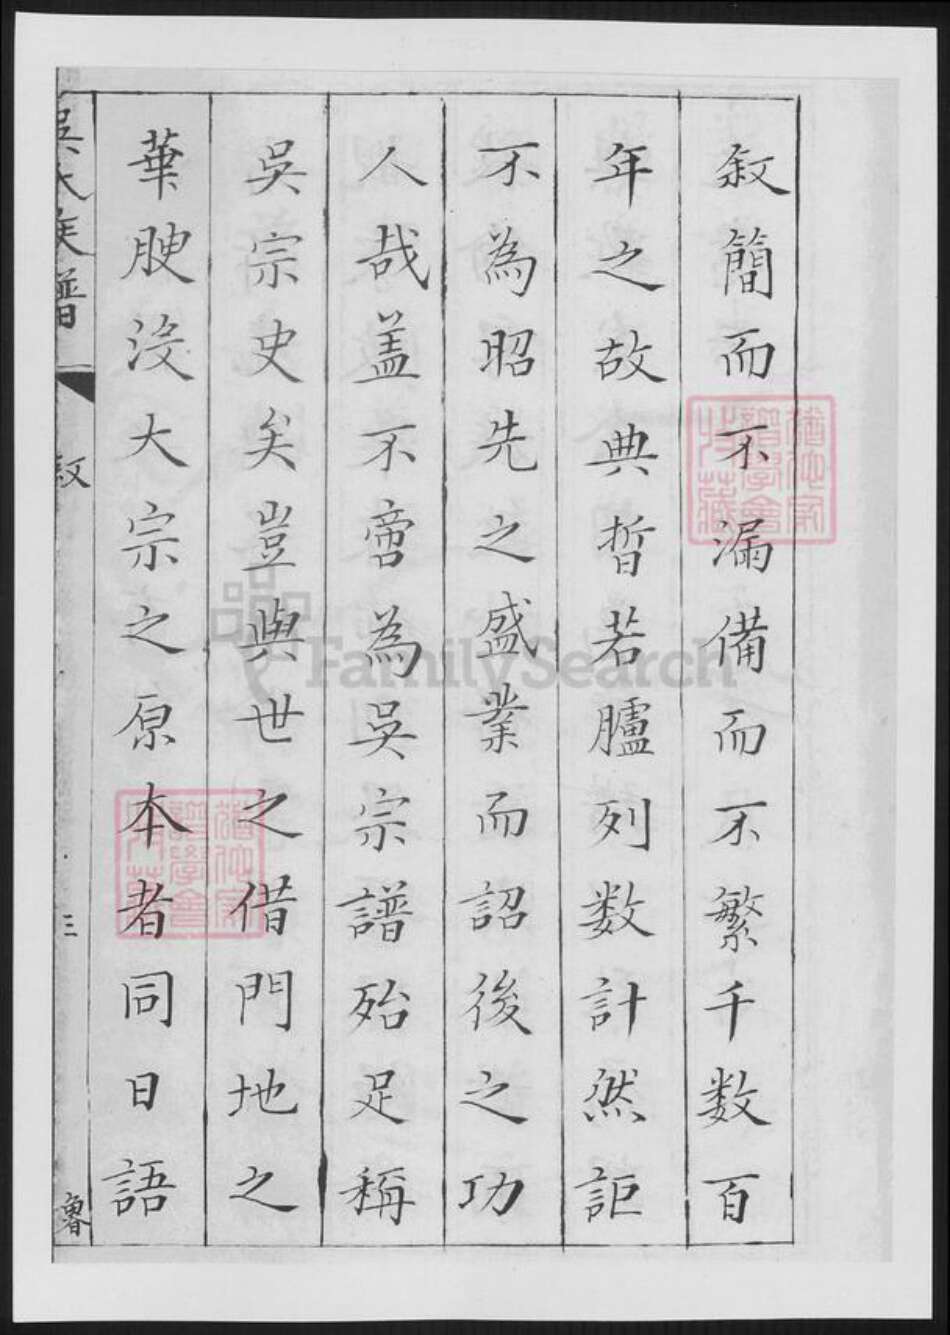 敘簡而不漏備而不繁千數百
年之故典晳若臚列数計然詎
不為昭先之盛業而詔後之功
人哉盖不啻為吳宗譜殆足稱
吳宗史矣豈與世之借門地之
華腴没大宗之原本者同日語
吳氏族譜
敘
三
魯
FamilySearch